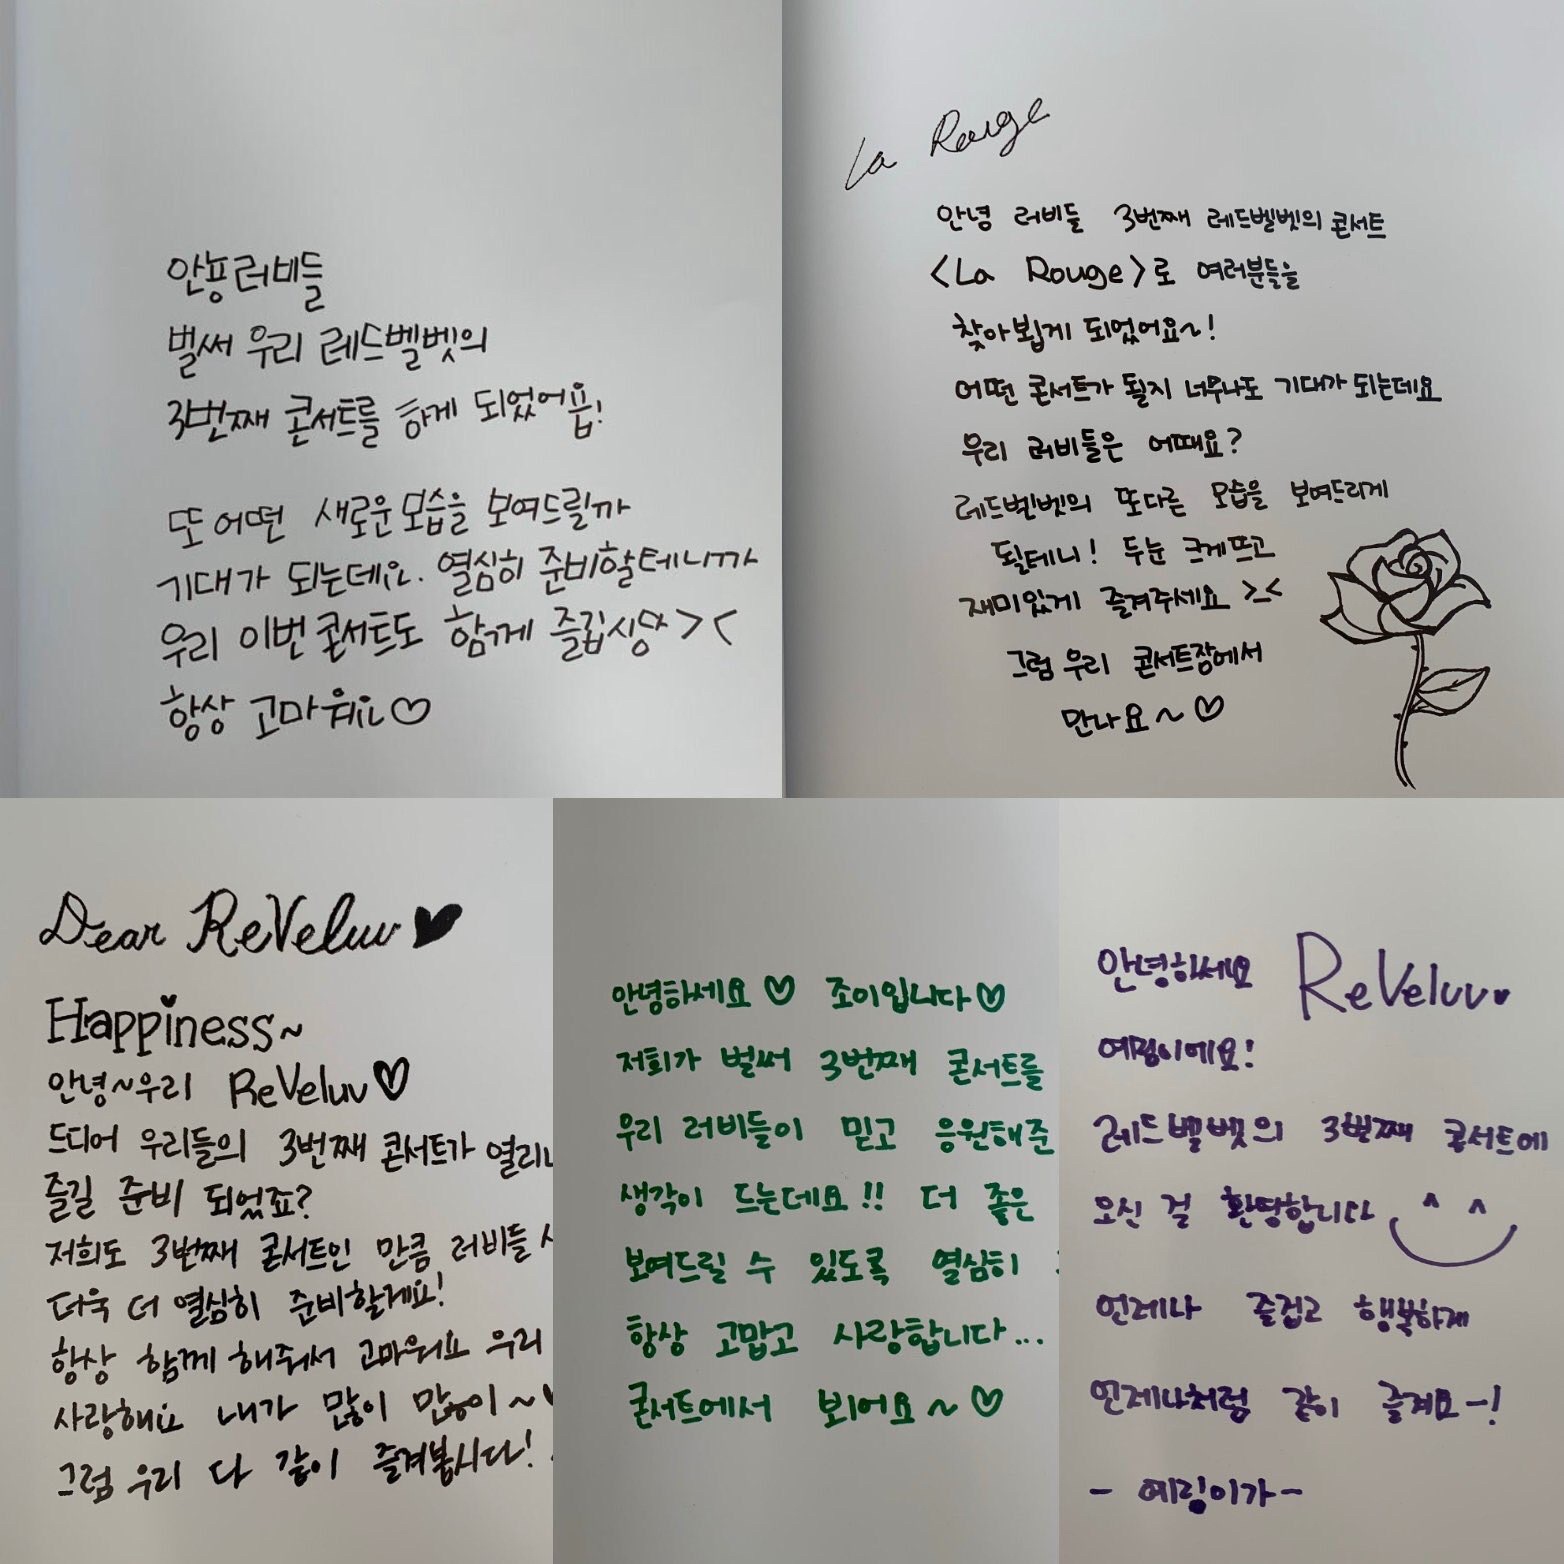 안뇽 러비들
벌써 우리 레드벨벳의
3번째 콘서트를 하게 되었어욥!
또 어떤 새로운 모습을 보여드릴까
기대가 되는데요. 열심히 준비할테니까
우리 이번 콘서트도 함께 즐깁시당 ><
항상 고마워요♡
La Rouge
안녕 러비들 3번째 레드벨벳의 콘서트
<La Rouge>로 여러분들을
찾아뵙게 되었어요~!
어떤 콘서트가 될지 너무나도 기대가 되는데요
우리 러비들은 어때요?
레드벨벳의 또다른 모습을 보여드리게
될테니! 두눈 크게뜨고
재미있게 즐겨주세요 >_<
그럼 우리 콘서트장에서
만나요~♡
Dear ReVeluv♥
Happiness~
안녕~우리 ReVeluv♡
드디어 우리들의 3번째 콘서트가
즐길 준비 되었죠?
저희도 3번째 콘서트인 만큼 러비들
더욱 더 열심히 준비할게요!
항상 함께 해줘서 고마워요 우리
사랑해요 내가 많이 많이~
그럼 우리 다 같이 즐겨봅시다!
안녕하세요♡ 조이입니다♡
저희가 벌써 3번째 콘서트를
우리 러비들이 믿고 응원해준
생각이 드는데요!! 더 좋은
보여드릴 수 있도록 열심히
항상 고맙고 사랑합니다...
콘서트에서 뵈어요~♡
안녕하세요 ReVeluv♥
예림이에요!
레드벨벳의 3번째 콘서트에
오신 걸 환영합니다
언제나 즐겁고 행복하게
언제나처럼 같이 즐겨요-!
- 예림이가 -